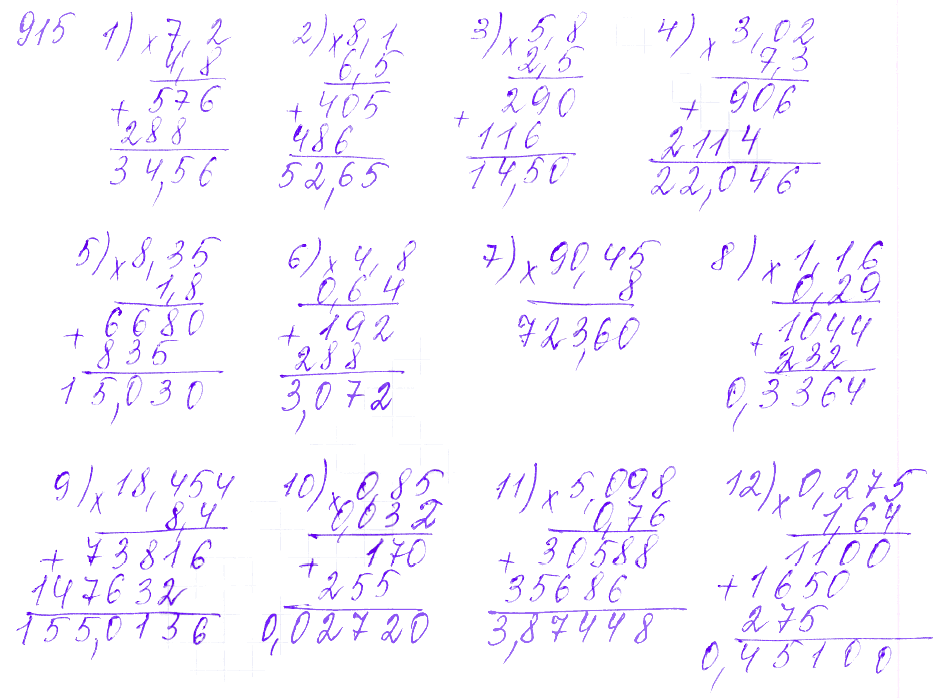 915 1) × 7,2 2) × 8,1 3) × 5,8 4) × 3,02
4,8 6,5 2,5 7,3
+ 576 + 405 + 290 + 906
288 486 116 2114
34,56 52,65 14,50 22,046
5) × 8,35 6) × 4,8 7) × 90,45 8) × 1,16
1,8 0,64 8 0,29
+ 6680 + 192 723,60 + 1044
835 288 232
15,030 3,072 0,3364
9) × 18,454 10) × 0,85 11) × 5,098 12) × 0,275
8,4 0,032 0,76 1,64
+ 73816 + 170 + 30588 1100
147632 255 35686 + 1650
155,0136 0,02720 3,87448 275
0,45100